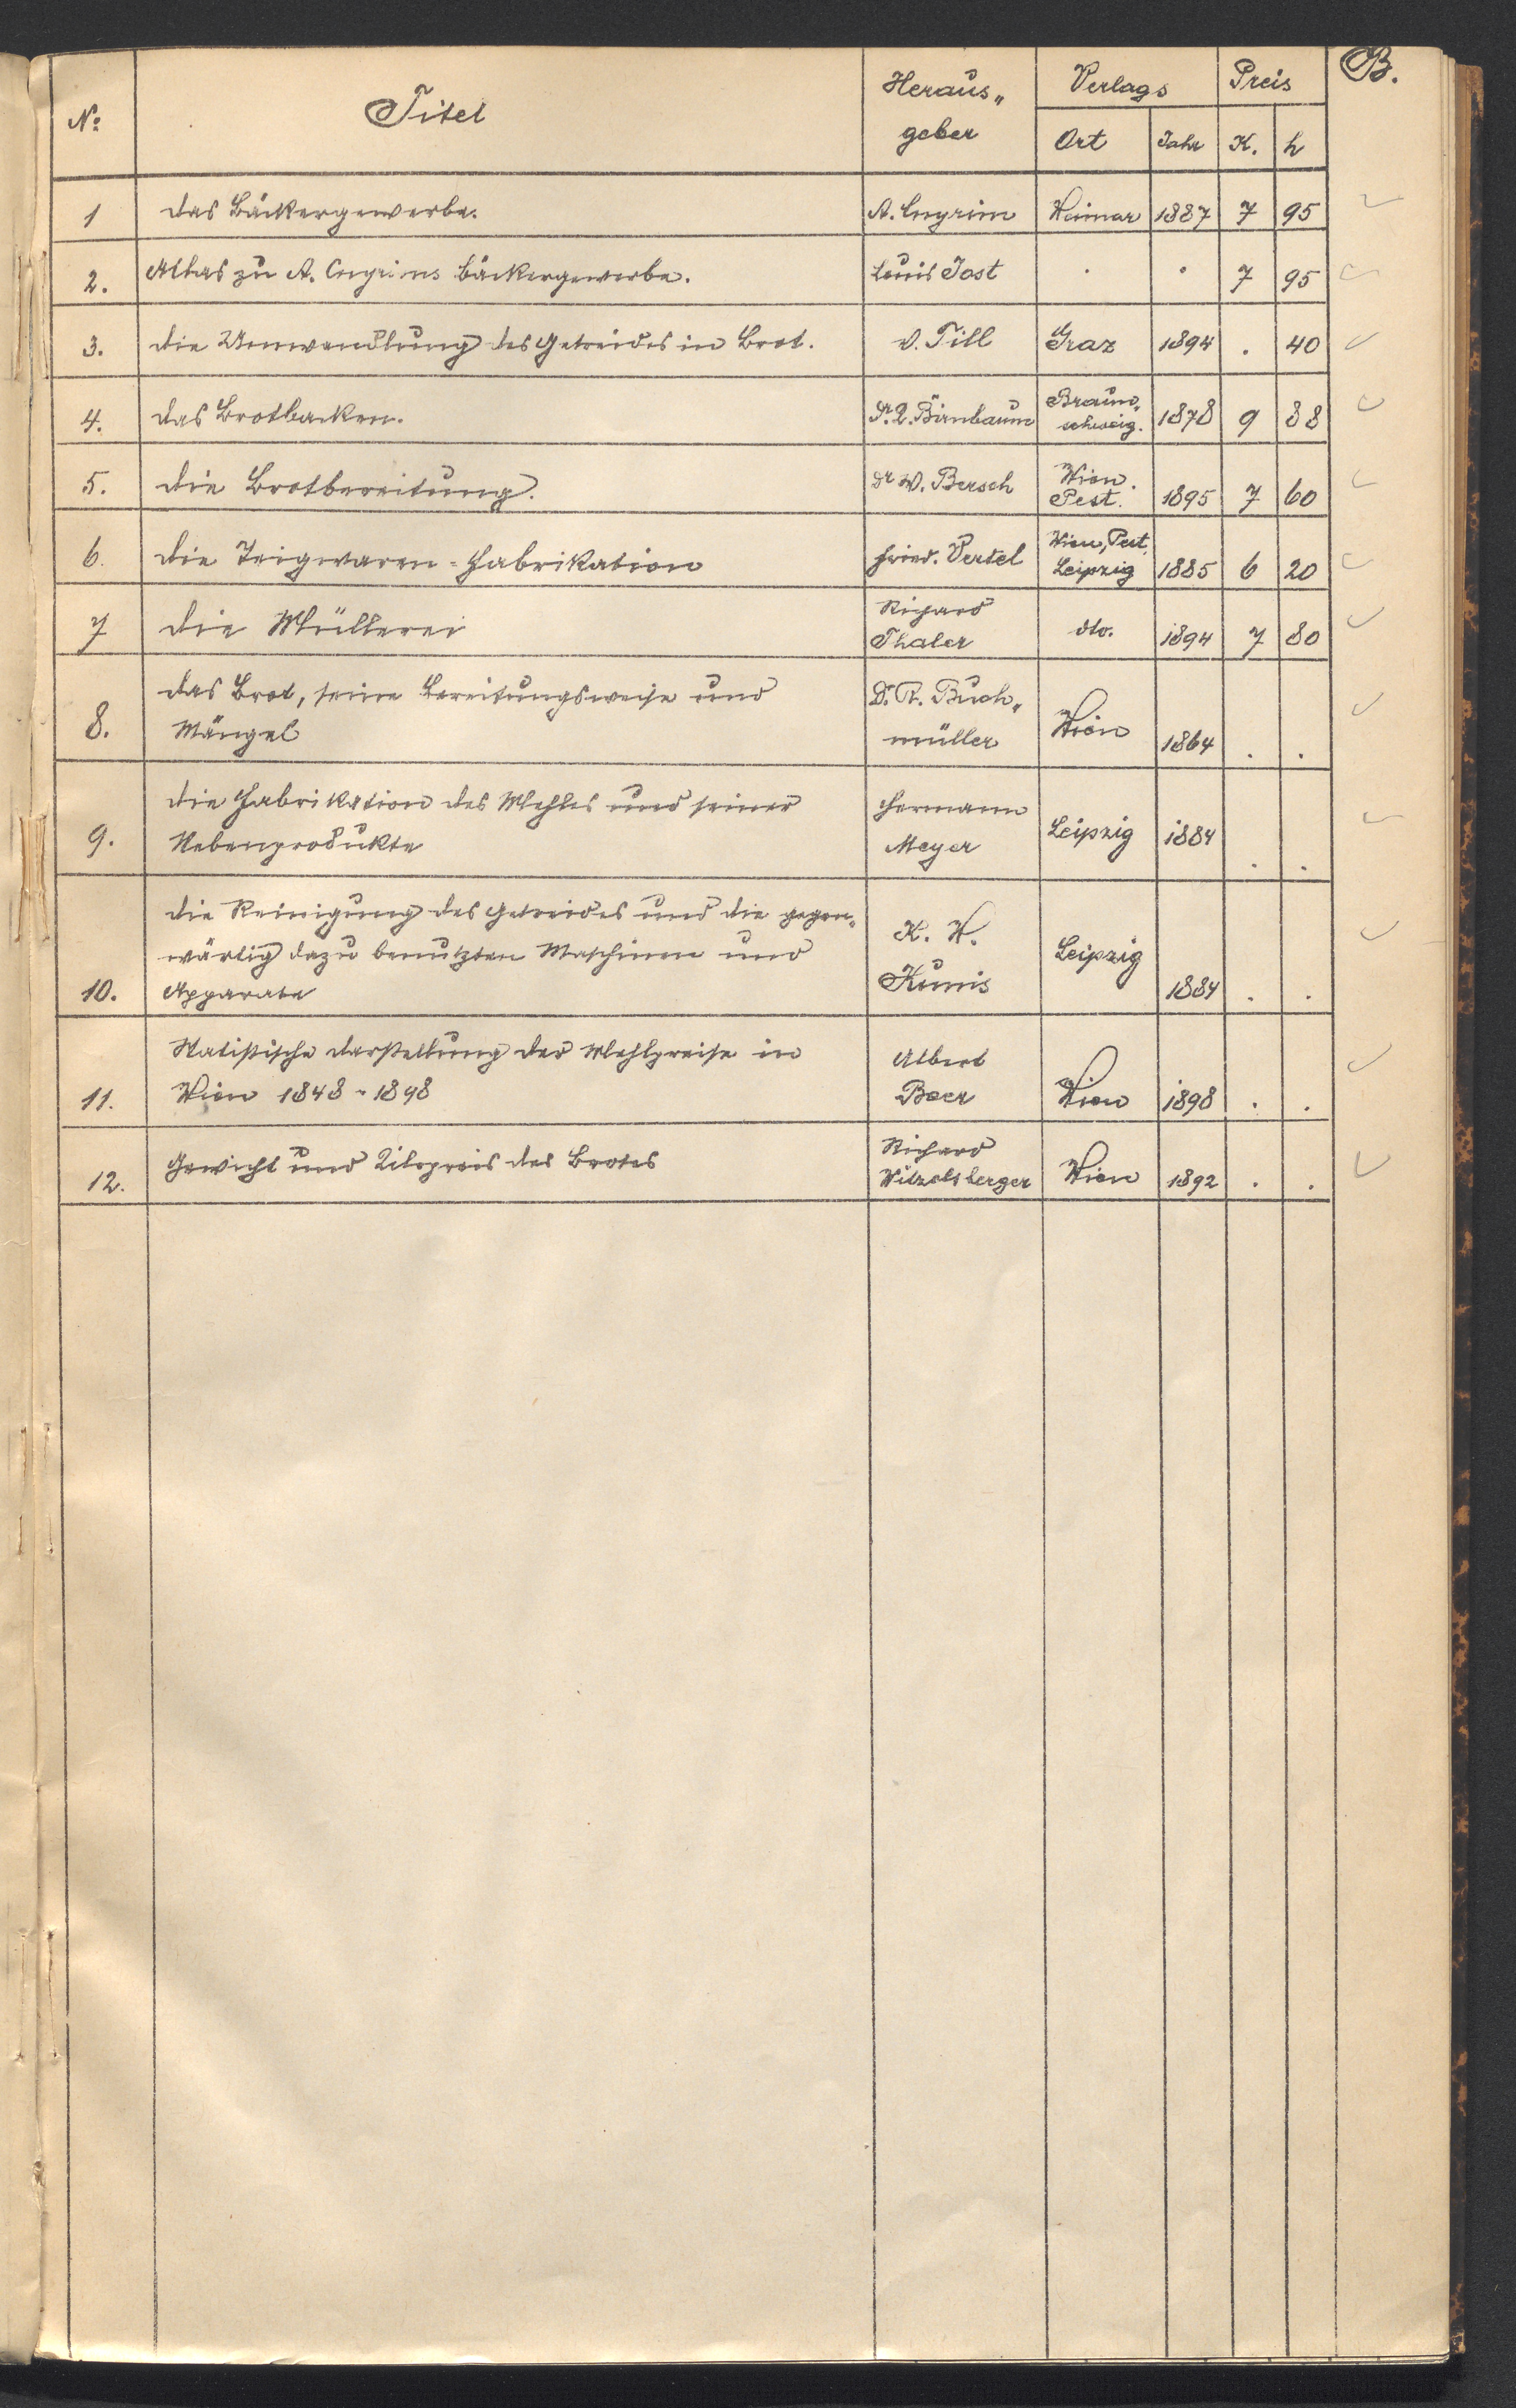 B.
No Titel Heraus„ Verlags Preis
geber Ort Jahr K. h
1 das Bäckergewerbe. A. Cnyrim Weimar 1887 7 95
2. Atlas zu A. Cnyrims Bäckergewerbe. Louis Jost . . 7 95
3. die Umwandlung des Getreides in Brot. v. Till Graz 1894 . 40
4. das Brotbacken. Dr. Birnbaum Braun„ 1878 9 88
schweig.
5. die Brotbereitung. Dr W. Bersch Wien. 1895 7 60
Pest.
6. die Teigwaren-Fabrikation Fried. Oertel Wien, Pest, 1885 6 20
Leipzig
7 die Müllerei Richard dto. 1894 7 80
Thaler
das Brot, seine Bereitungsweise und Dr. R. Buch„
8. Mängel müller Wien 1864 . .
die Fabrikation des Mehles und seiner Hermann
9. Nebenprodukte Meyer Leipzig 1884 . .
die Reinigung des Getreides und die gegen„ K. W.
wärtig dazu benutzten Maschinen und Leipzig
10. Apparate Kunis 1884 . .
Statistische Darstellung der Mehlpreise in Albert
11. Wien 1848-1898 Boer Wien 1898 . .
Gewicht und Kilopreis des Brotes Richard
12. Witzelsberger Wien 1892 . .